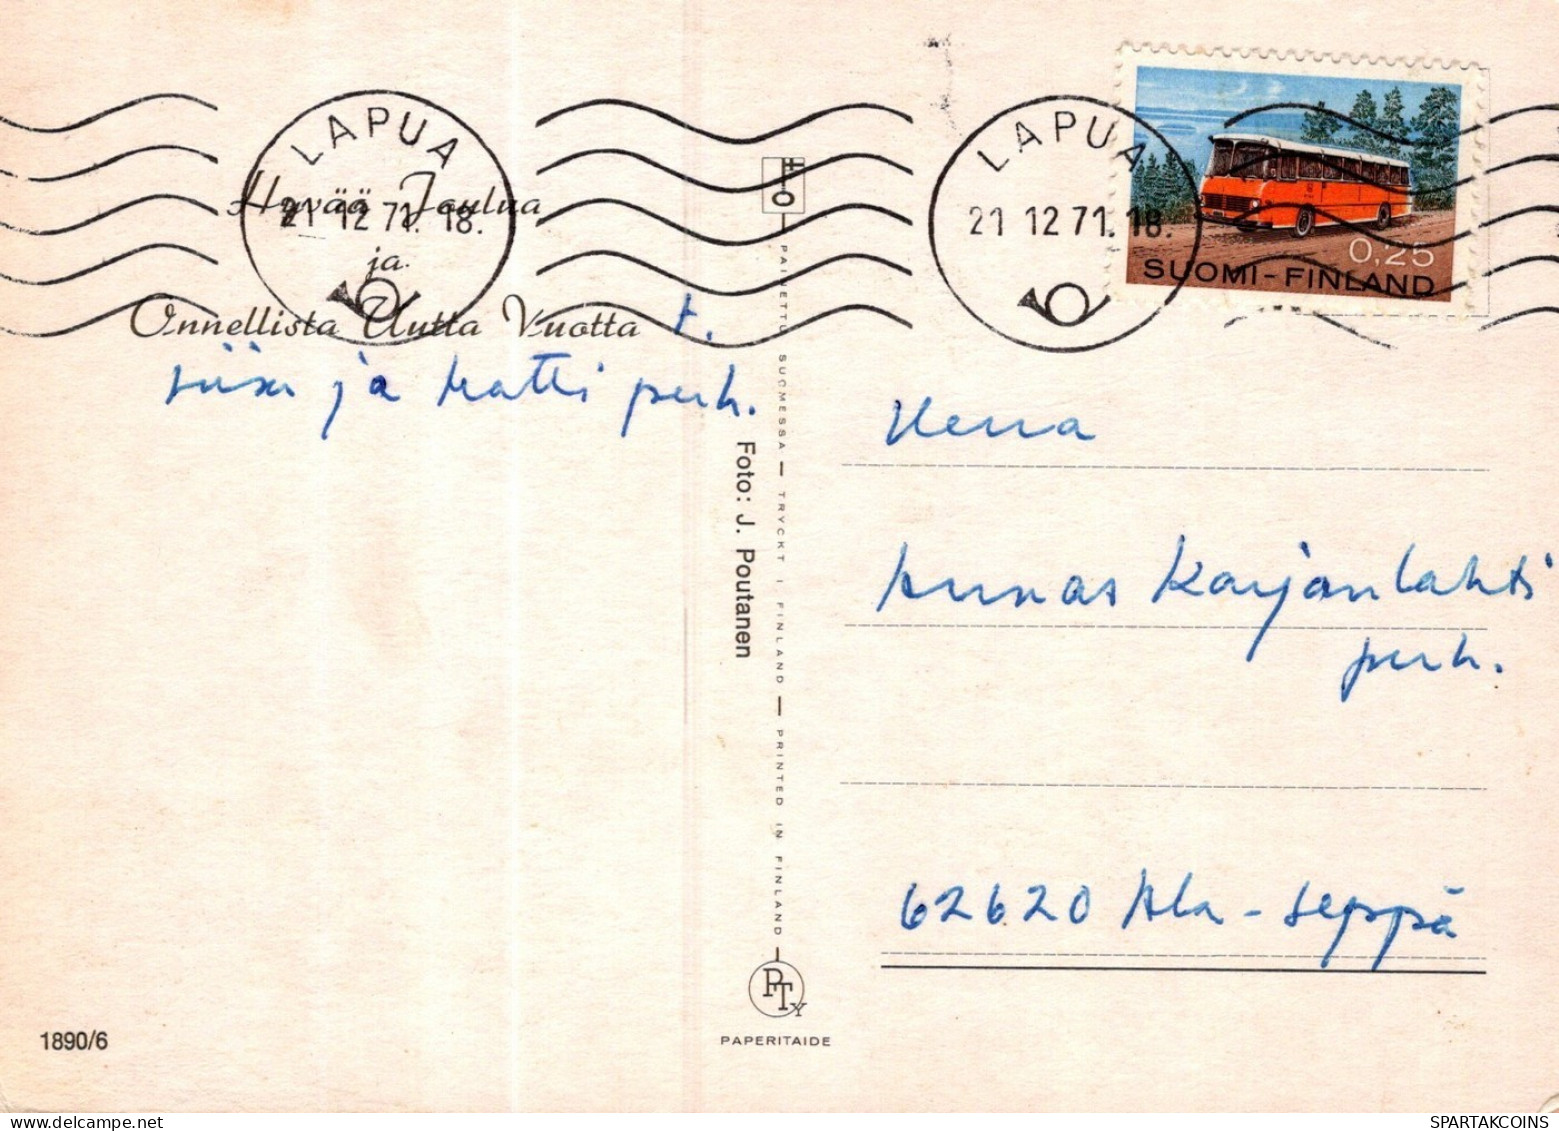 LAPUA
21 12 71. 18.
LAPUA
21 12 71. 18.
0,25
SUOMI-FINLAND
Hyvää Joulua
ja
Onnellista Uutta Vuotta t.
ja Matti perh.
PAINETTU SUOMESSA — TRYCKT I FINLAND — PRINTED IN FINLAND
Foto: J. Poutanen
Herra
Karjanlahti
perh.
62620 Ala-Seppä
PTY
PAPERITAIDE
1890/6
SPARTAKCOINS